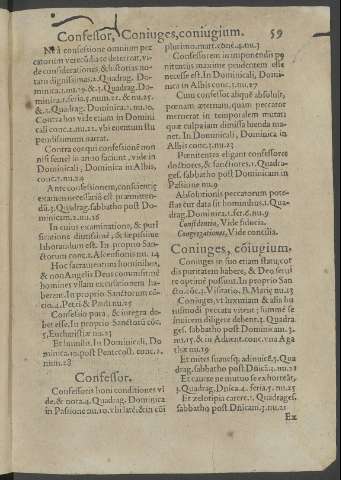 Confessor, Coniuges, coniugium. 59
Ne à confessione omnium pec
catorum verecũdia te deterreat, vi-
de considerationes, & historias no-
tatu dignissimas, 2. Quadrag. Do-
minica. 1. nu. 19. & .3. Quadrag. Do-
minica. 1. feria .5. num. 21. & nu. 25.
& .2. Quadrag. Dominica. 2. nu. 10.
Contra hos vide etiam in Domini
cali conc. 2. nu. 21. vbi eorum stu
pendissimum narrat.
Contra eos qui confessionẽ non
nisi semel in anno faciunt, vide in
Dominicali, Dominica in Albis,
conc. 2. nu. 24
Ante confessionem, conscientiæ
examen necessariũ est præmitten-
dũ. 3. Quadrag. sabbatho post Do-
minicam. 2. nu. 26
In cuius examinatione, & puri
ficatione dignissimè, & sæpissime
laborandum est. In proprio San-
ctorum conc. 2. Ascensionis nu. 14
Hoc sacramentum hominibus,
& non Angelis Deus commisit nè
homines vllam excusationem ha-
berent. In proprio Sanctorum cõ-
cio. 4. Petri & Pauli nu. 25
Confessio pura, & integra de-
bet esse. In proprio Sanctorũ cõc.
5. Eucharistiæ nu. 23
Et humilis. In Dominicali, Do
minica. 10. post Pentecost. conc. 2.
num. 28
Confessor.
Confessoris boni conditiones vi
de, & nota. 4. Quadrag. Dominica
in Passione nu. 10. vbi latè: & in cõi
plurimo. mart. conc. 4. nu. 3
Confessorem in imponendis pœ
nitentijs maxime prudentem esse
necesse est. In Dominicali, Domi-
nica in Albis conc. 2. nu. 27
Cum confessor absque absoluit,
pœnam æternam, quam peccator
meretur in temporalem mutat:
quæ culpa iam dimissa luenda ma-
net. In Dominicali, Dominica in
Albis conc. 2. nu. 23
Pœnitentes eligant confessores
doctiores, & sanctiores. 1. Quadra-
ges. sabbatho post Dominicam in
Passione nu. 9
Absolutionis peccatorum potes-
tas cur data sit hominibus. 1. Qua-
drag. Dominica. 1. fer. 6. nu. 9
Confidentia, Vide fiducia.
Congregationes, Vide concilia.
Coniuges, cõiugium.
Coniuges in suo etiam statu, cor
dis puritatem habere, & Deo serui
re optimè possunt. In proprio San
cto. cõc. 4. Visitatio. B. Mariæ nu. 23
Coniuges, vt luxuriam & alia hu
iusmodi peccata vitent; summè se
inuicem diligere debent. 4. Quadra
ges. sabbatho post Dominicam. 3.
nu. 15. & in Aduent. conc. vna Aga
thæ nu. 19
Et mites suauesq; adinuicẽ. 3. Qua
drag. sabbatho post Dñicã. 3. nu. 21
Et curare ne mutuo se exhorteãt.
3. Quadrag. Dñica. 4. feria. 5. nu. 25
Et zelotipia carere. 1. Quadrages.
sabbatho post Dñicam. 3. nu. 21
Ex